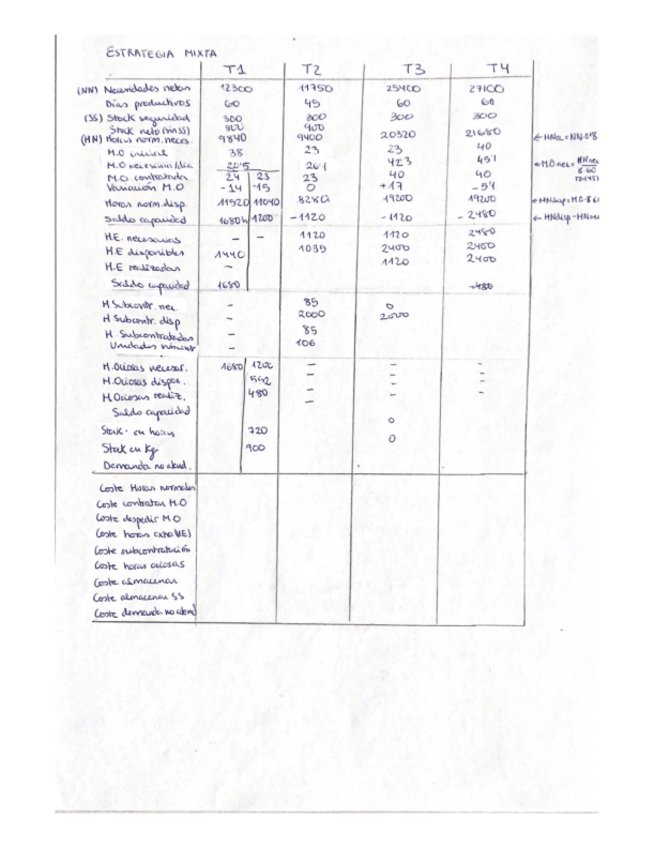 ESTRATEGIA MIXTA
T1 T2 T3 T4
(NN) Necesidades netas 12300 11750 25400 27100
Días productivos 60 45 60 60
(SS) Stock seguridad 300 300 300 300
Stock neto (sin SS) 800 900
(HN) Horas norm. neces. 9840 9400 20320 21680 ← HNec = NN·0'8
M.O inicial 38 23 23 40
M.O necesaria/día 20'5 26'1 42'3 45'1
M.O contratada 24 23 23 40 40
Variación M.O -14 -15 0 +17
Horas norm. disp. 11520 11040 8280 19200 19200
Saldo capacidad 1680h 1200 -1120 -1120 -2480
H.E. necesarias - - 1120 1120 2480
H.E disponibles 1440 1035 2400 2400
H.E realizadas - 1120 2400
Saldo capacidad 1680 -480
H Subcontr. nec - 85 0
H Subcontr. disp - 2000 2000
H Subcontratadas - 85
Unidades - 106
H. Ociosas necesar. 1680 1200 - - -
H. Ociosas dispon. - - -
H. Ociosas realiz. 480 - - -
Saldo capacidad
Stock en horas 720 0
Stock en Kg 900 0
Demanda no atend.
Coste Horas normales
Coste contratar M.O
Coste despedir M.O
Coste horas extra (HE)
Coste subcontratación
Coste horas ociosas
Coste almacenar
Coste almacenar SS
Coste demanda no atend